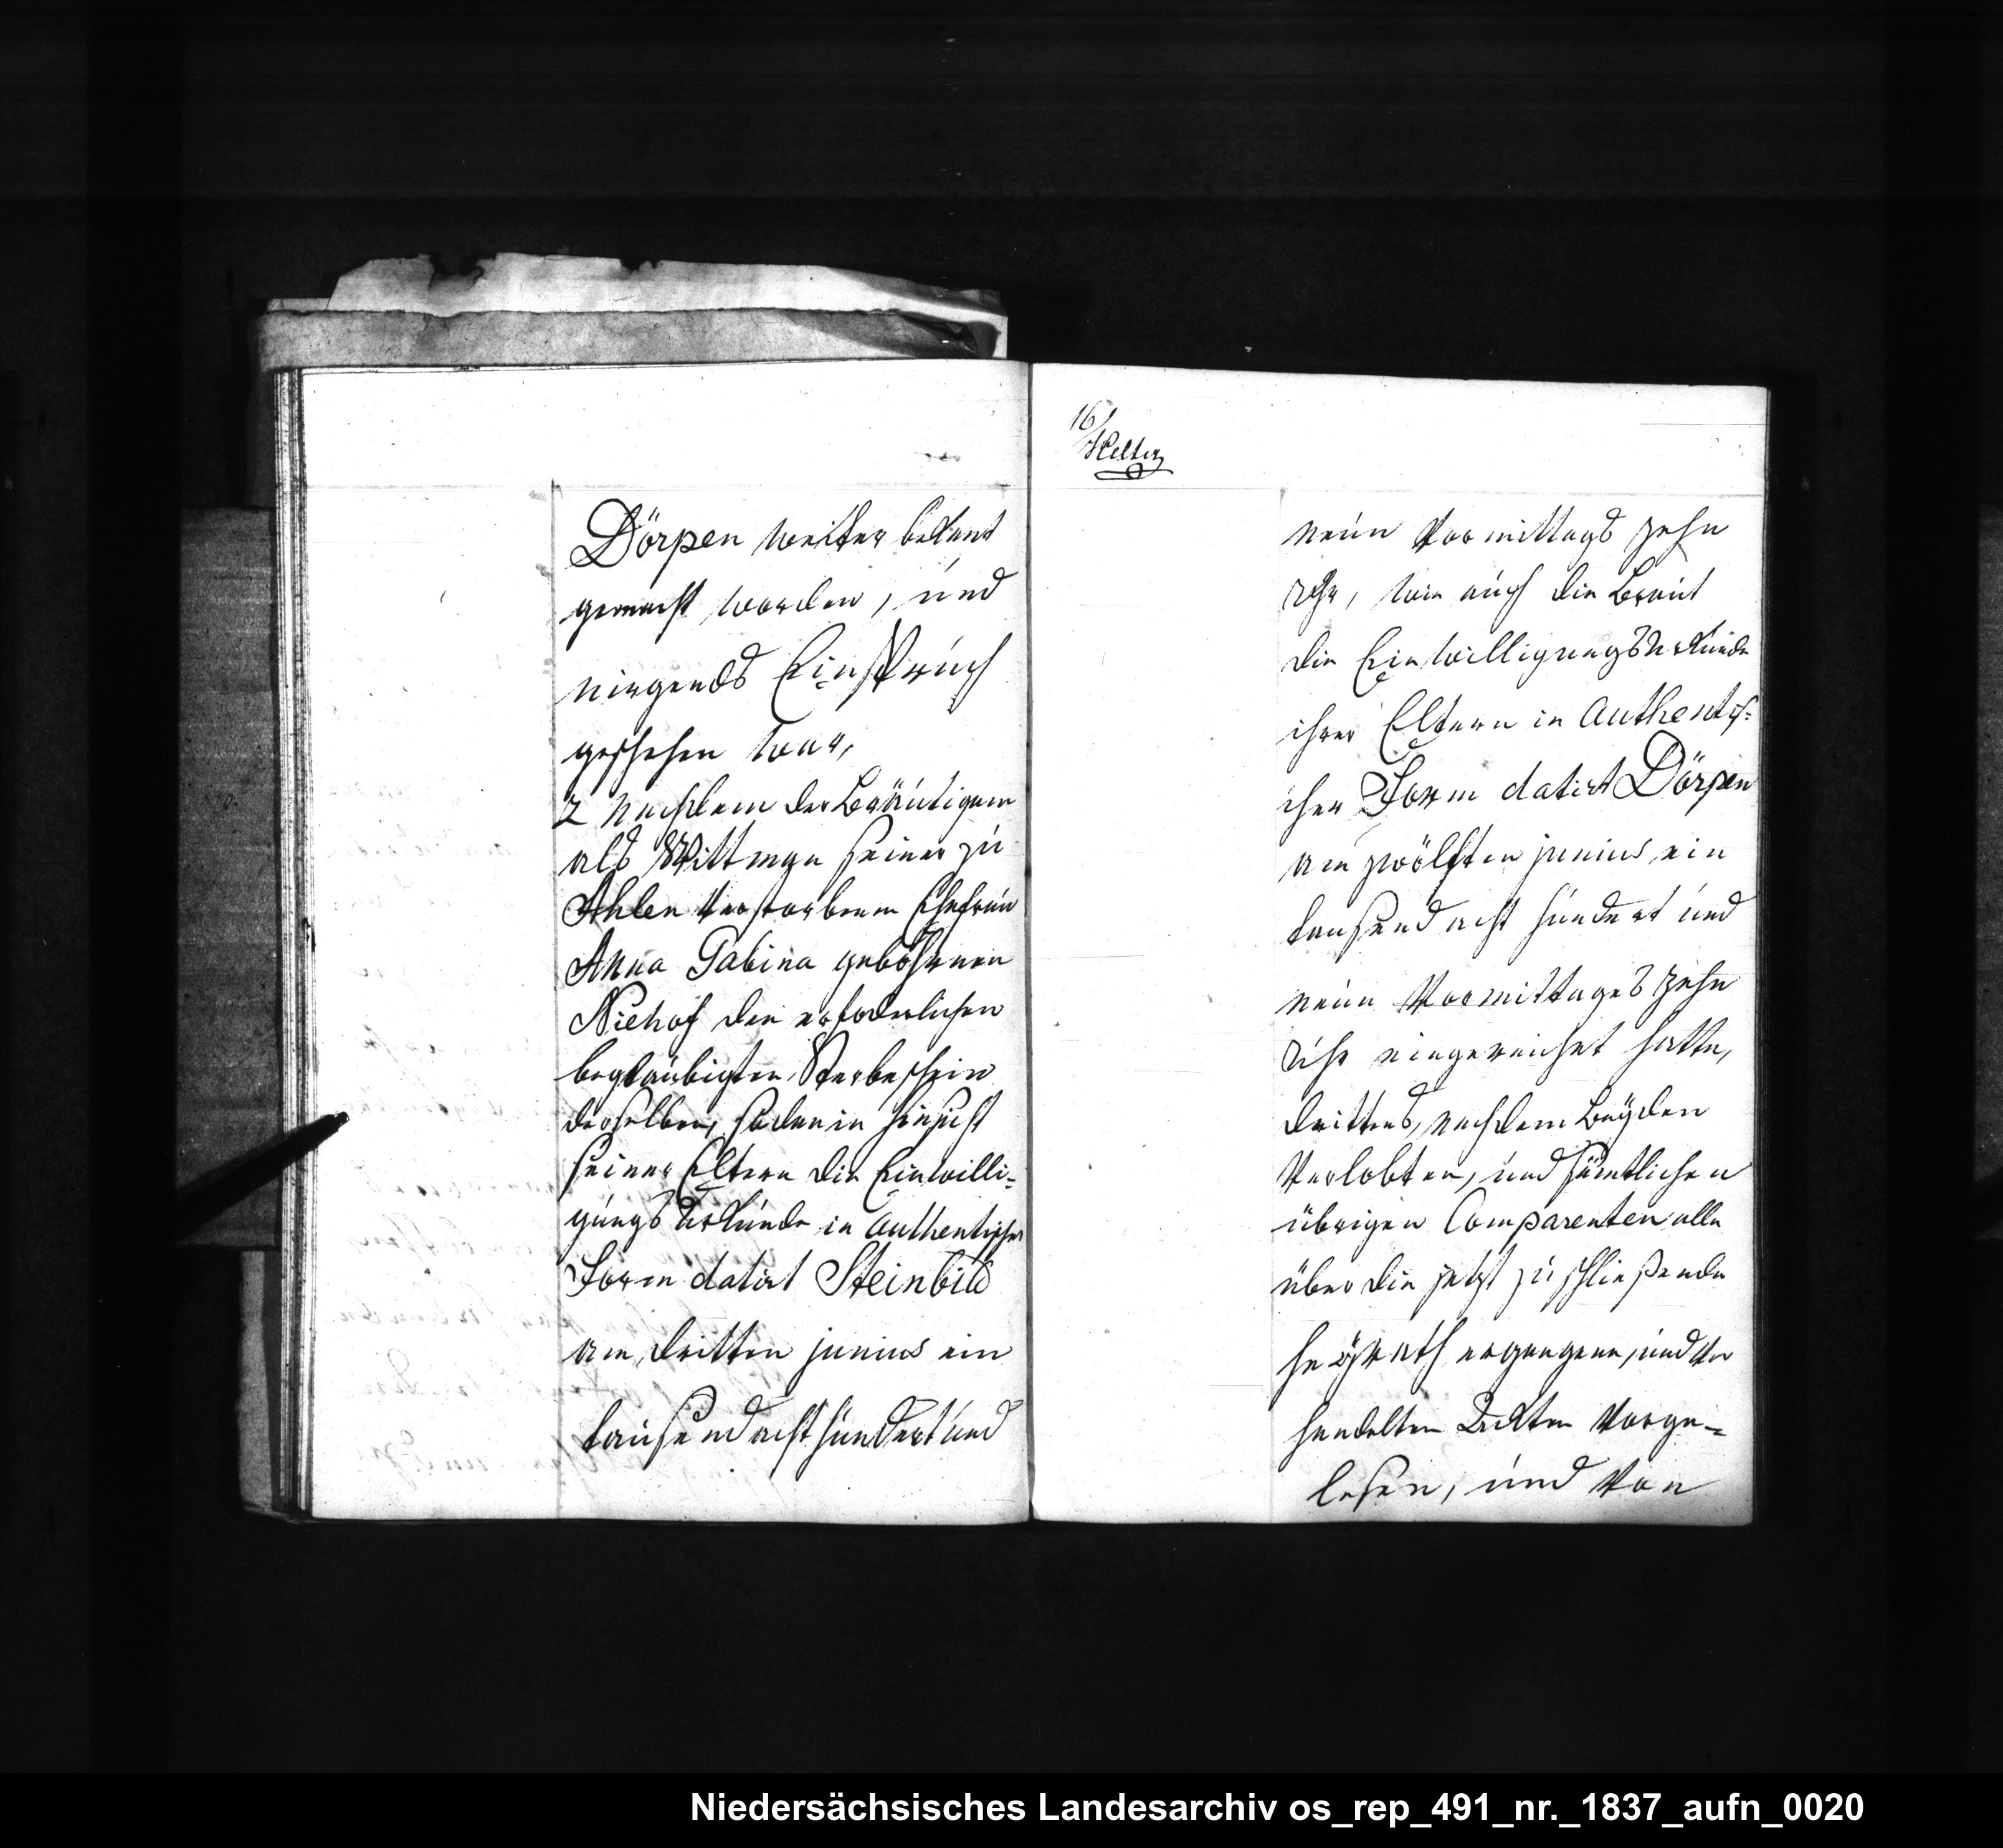 Dörpen weiter bekant
gemacht worden, und
nirgends Einspruch
geschehen war,
2 Nachdem der Bräutigam
als Wittwer seiner zu
Ahlen verstorbenen Ehefrau
Anna Tabina gebohrenen
Niehof den erforderlichen
beglaubigten Sterbeschein
derselben, so dan in Hinsicht
seiner Eltern die Einwilli-
gungs Urkunde in Authentischer
Form datirt Steinbild
am dritten junius ein
tausend acht hundert und
16
neun Vormittags zehn
Uhr, wie auch die Braut
die Einwilligungs Urkunde
ihrer Eltern in Authentis-
cher Form datirt Dörpen
am zwölften junius ein
tausend acht hundert und
neun Vormittages zehn
Uhr eingereichet hatte,
drittens, nachdem beyden
Verlobten, und sämtlichen
übrigen Comparenten alle
über die jetzt zu schließende
Heyrath ergangene, und ver
handelten Ackten vorge-
lesen, und von
Niedersächsisches Landesarchiv os_rep_491_nr._1837_aufn_0020